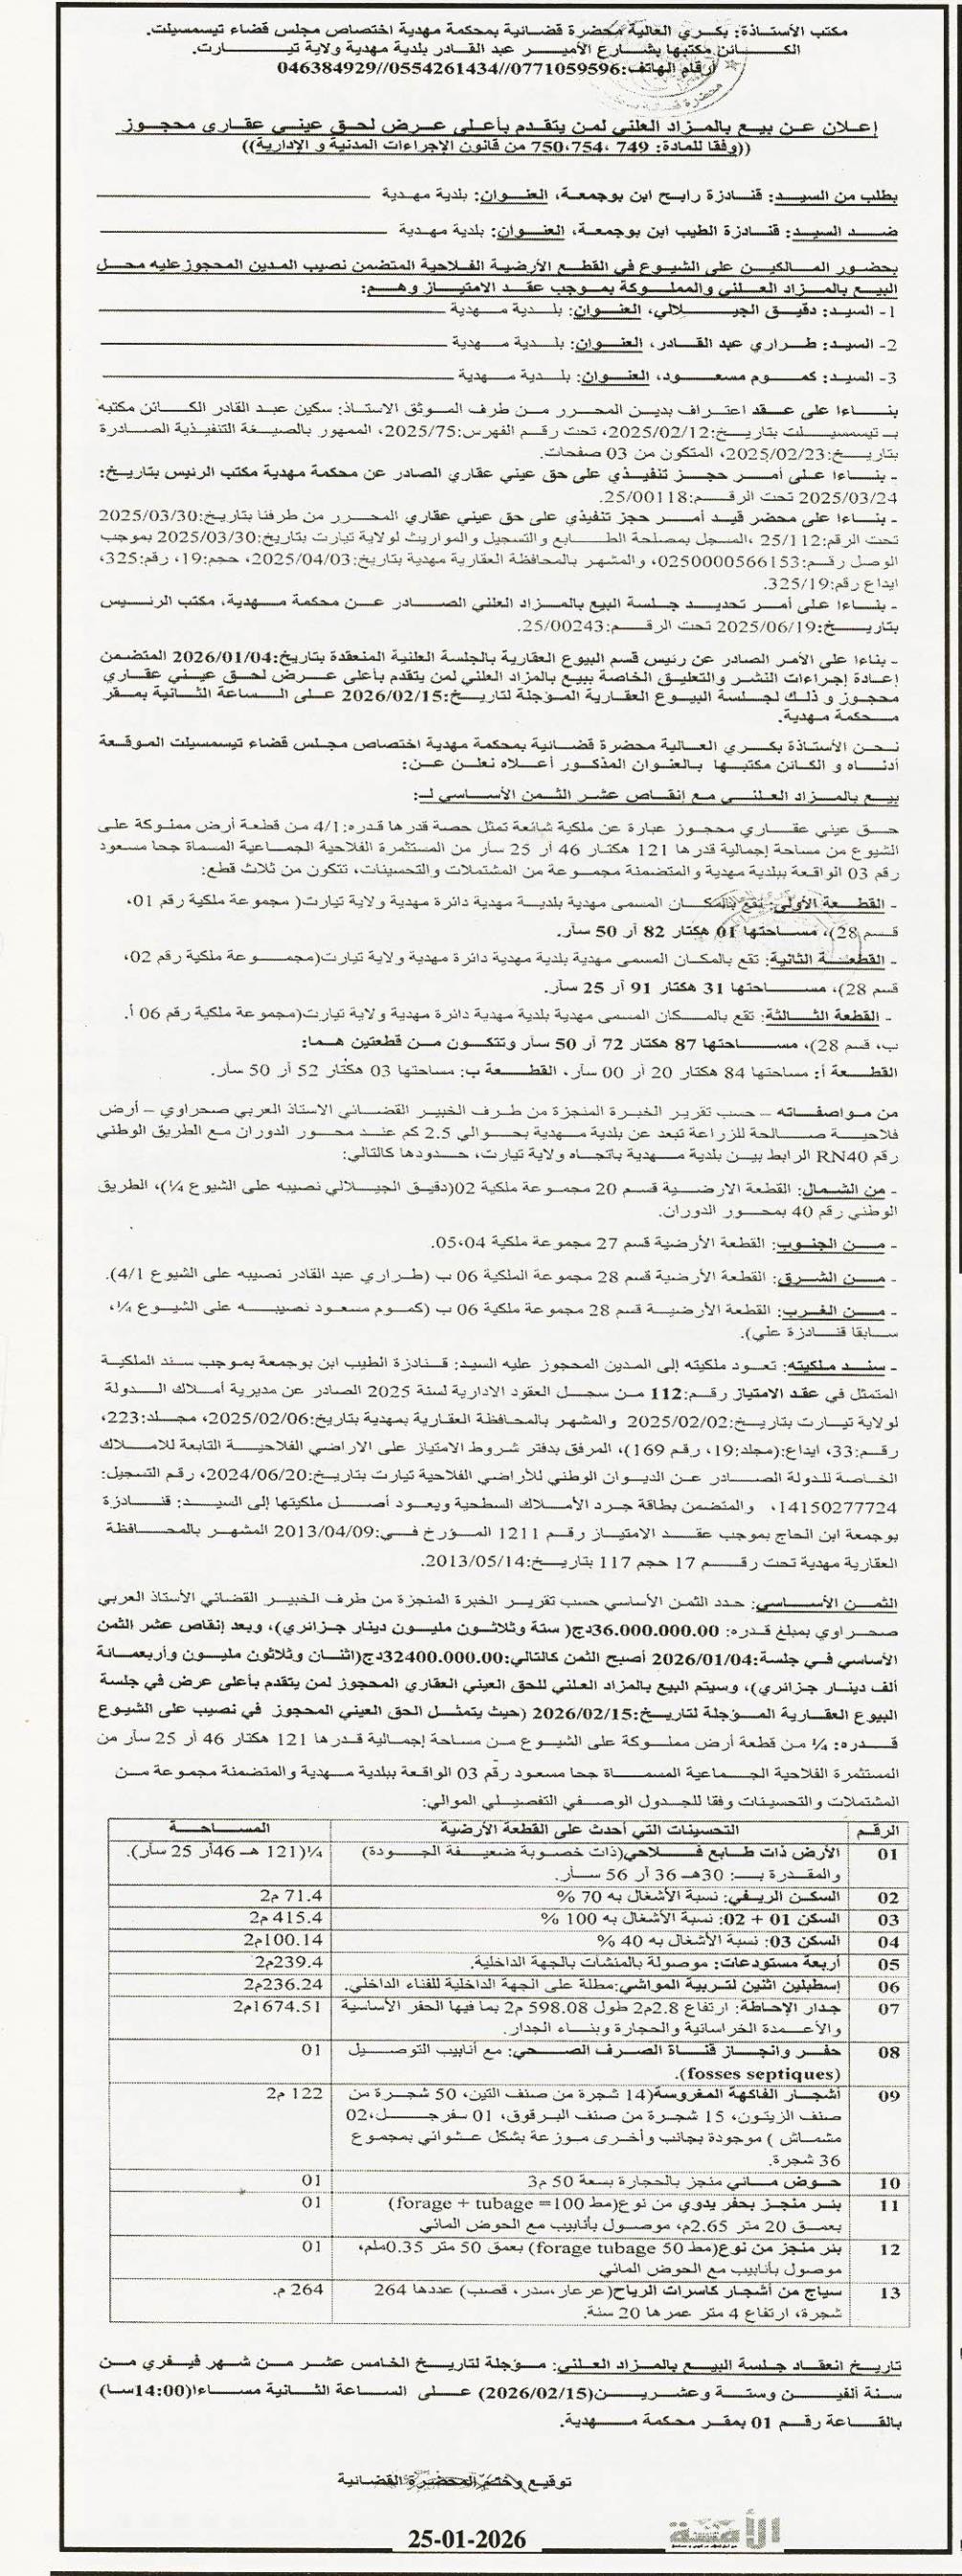 مكتب الأستاذة: بكري العالية محضرة قضائية بمحكمة مهدية اختصاص مجلس قضاء تيسمسيلت.
الكائن مكتبها بشارع الأمير عبد القادر بلدية مهدية ولاية تيارت.
أرقام الهاتف:0771059596//0554261434//046384929
إعلان عن بيع بالمزاد العلني لمن يتقدم بأعلى عرض لحق عيني عقاري محجوز
((وفقا للمادة: 749 ،750،754 من قانون الإجراءات المدنية و الإدارية))
بطلب من السيد: قنادزة رابح ابن بوجمعة، العنوان: بلدية مهدية
ضد السيد: قنادزة الطيب ابن بوجمعة، العنوان: بلدية مهدية
بحضور المالكين على الشيوع في القطع الأرضية الفلاحية المتضمن نصيب المدين المحجوز عليه محل
البيع بالمزاد العلني والمملوكة بموجب عقد الامتياز وهم:
1- السيد: دقيق الجيلالي، العنوان: بلدية مهدية
2- السيد: طراري عبد القادر، العنوان: بلدية مهدية
3- السيد: كموم مسعود، العنوان: بلدية مهدية
بناءا على عقد اعتراف بدين المحرر من طرف الموثق الاستاذ: سكين عبد القادر الكائن مكتبه
بـ تيسمسيلت بتاريخ:2025/02/12، تحت رقم الفهرس:2025/75، الممهور بالصيغة التنفيذية الصادرة
بتاريخ:2025/02/23، المتكون من 03 صفحات.
- بناءا على أمر حجز تنفيذي على حق عيني عقاري الصادر عن محكمة مهدية مكتب الرئيس بتاريخ:
2025/03/24 تحت الرقم:25/00118.
- بناءا على محضر قيد أمر حجز تنفيذي على حق عيني عقاري المحرر من طرفنا بتاريخ:2025/03/30
تحت الرقم:25/112 ،المسجل بمصلحة الطابع والتسجيل والمواريث لولاية تيارت بتاريخ:2025/03/30 بموجب
الوصل رقم:0250000566153، والمشهر بالمحافظة العقارية مهدية بتاريخ:2025/04/03، حجم:19، رقم:325،
ايداع رقم:325/19.
- بناءا على أمر تحديد جلسة البيع بالمزاد العلني الصادر عن محكمة مهدية، مكتب الرئيس
بتاريخ:2025/06/19 تحت الرقم:25/00243.
- بناءا على الأمر الصادر عن رئيس قسم البيوع العقارية بالجلسة العلنية المنعقدة بتاريخ:2026/01/04 المتضمن
إعادة إجراءات النشر والتعليق الخاصة ببيع بالمزاد العلني لمن يتقدم بأعلى عرض لحق عيني عقاري
محجوز و ذلك لجلسة البيوع العقارية المؤجلة لتاريخ:2026/02/15 على الساعة الثانية بمقر
محكمة مهدية.
نحن الأستاذة بكري العالية محضرة قضائية بمحكمة مهدية اختصاص مجلس قضاء تيسمسيلت الموقعة
أدناه و الكائن مكتبها بالعنوان المذكور أعلاه نعلن عن:
بيع بالمزاد العلني مع إنقاص عشر الثمن الأساسي لـ:
حق عيني عقاري محجوز عبارة عن ملكية شائعة تمثل حصة قدرها قدره:4/1 من قطعة أرض مملوكة على
الشيوع من مساحة إجمالية قدرها 121 هكتار 46 أر 25 سآر من المستثمرة الفلاحية الجماعية المسماة جحا مسعود
رقم 03 الواقعة ببلدية مهدية والمتضمنة مجموعة من المشتملات والتحسينات، تتكون من ثلاث قطع:
- القطعة الأولى: تقع بالمكان المسمى مهدية بلدية مهدية دائرة مهدية ولاية تيارت( مجموعة ملكية رقم 01،
قسم 28)، مساحتها 01 هكتار 82 أر 50 سآر.
- القطعة الثانية: تقع بالمكان المسمى مهدية بلدية مهدية دائرة مهدية ولاية تيارت(مجموعة ملكية رقم 02،
قسم 28)، مساحتها 31 هكتار 91 أر 25 سآر.
- القطعة الثالثة: تقع بالمكان المسمى مهدية بلدية مهدية دائرة مهدية ولاية تيارت(مجموعة ملكية رقم 06 أ.
ب، قسم 28)، مساحتها 87 هكتار 72 أر 50 سآر وتتكون من قطعتين هما:
القطعة أ: مساحتها 84 هكتار 20 أر 00 سآر، القطعة ب: مساحتها 03 هكتار 52 أر 50 سآر.
من مواصفاته – حسب تقرير الخبرة المنجزة من طرف الخبير القضائي الاستاذ العربي صحراوي – أرض
فلاحية صالحة للزراعة تبعد عن بلدية مهدية بحوالي 2.5 كم عند محور الدوران مع الطريق الوطني
رقم RN40 الرابط بين بلدية مهدية باتجاه ولاية تيارت، حدودها كالتالي:
- من الشمال: القطعة الارضية قسم 20 مجموعة ملكية 02(دقيق الجيلالي نصيبه على الشيوع ¼)، الطريق
الوطني رقم 40 بمحور الدوران.
- من الجنوب: القطعة الأرضية قسم 27 مجموعة ملكية 05،04.
- من الشرق: القطعة الأرضية قسم 28 مجموعة الملكية 06 ب (طراري عبد القادر نصيبه على الشيوع 4/1).
- من الغرب: القطعة الأرضية قسم 28 مجموعة ملكية 06 ب (كموم مسعود نصيبه على الشيوع ¼،
سابقا قنادزة علي).
- سند ملكيته: تعود ملكيته إلى المدين المحجوز عليه السيد: قنادزة الطيب ابن بوجمعة بموجب سند الملكية
المتمثل في عقد الامتياز رقم:112 من سجل العقود الادارية لسنة 2025 الصادر عن مديرية أملاك الدولة
لولاية تيارت بتاريخ:2025/02/02 والمشهر بالمحافظة العقارية بمهدية بتاريخ:2025/02/06، مجلد:223،
رقم:33، ايداع:(مجلد:19، رقم 169)، المرفق بدفتر شروط الامتياز على الاراضي الفلاحية التابعة للاملاك
الخاصة للدولة الصادر عن الديوان الوطني للأراضي الفلاحية تيارت بتاريخ:2024/06/20، رقم التسجيل:
14150277724، والمتضمن بطاقة جرد الأملاك السطحية ويعود أصل ملكيتها إلى السيد: قنادزة
بوجمعة ابن الحاج بموجب عقد الامتياز رقم 1211 المؤرخ في:2013/04/09 المشهر بالمحافظة
العقارية مهدية تحت رقم 17 حجم 117 بتاريخ:2013/05/14.
الثمن الأساسي: حدد الثمن الأساسي حسب تقرير الخبرة المنجزة من طرف الخبير القضائي الأستاذ العربي
صحراوي بمبلغ قدره: 36.000.000.00دج( ستة وثلاثون مليون دينار جزائري)، وبعد إنقاص عشر الثمن
الأساسي في جلسة:2026/01/04 أصبح الثمن كالتالي:32400.000.00دج(اثنان وثلاثون مليون وأربعمائة
ألف دينار جزائري)، وسيتم البيع بالمزاد العلني للحق العيني العقاري المحجوز لمن يتقدم بأعلى عرض في جلسة
البيوع العقارية المؤجلة لتاريخ:2026/02/15 (حيث يتمثل الحق العيني المحجوز في نصيب على الشيوع
قدره: ¼ من قطعة أرض مملوكة على الشيوع من مساحة إجمالية قدرها 121 هكتار 46 أر 25 سآر من
المستثمرة الفلاحية الجماعية المسماة جحا مسعود رقم 03 الواقعة ببلدية مهدية والمتضمنة مجموعة من
المشتملات والتحسينات وفقا للجدول الوصفي التفصيلي الموالي:
الرقم التحسينات التي أحدث على القطعة الأرضية المساحة
01 الأرض ذات طابع فلاحي(ذات خصوبة ضعيفة الجودة) ¼(121 هـ 46أر 25 سآر).
والمقدرة بـ: 30هـ 36 أر 56 سآر.
02 السكن الريفي: نسبة الأشغال به 70 % 71.4 م2
03 السكن 01 + 02: نسبة الأشغال به 100 % 415.4 م2
04 السكن 03: نسبة الأشغال به 40 % 100.14م2
05 أربعة مستودعات: موصولة بالمنشآت بالجهة الداخلية. 239.4م2
06 إسطبلين اثنين لتربية المواشي:مطلة على الجهة الداخلية للفناء الداخلي. 236.24م2
07 جدار الإحاطة: ارتفاع 2.8م2 طول 598.08 م2 بما فيها الحفر الأساسية 1674.51م2
والأعمدة الخراسانية والحجارة وبناء الجدار.
08 حفر وانجاز قناة الصرف الصحي: مع أنابيب التوصيل 01
(fosses septiques).
09 أشجار الفاكهة المغروسة(14 شجرة من صنف التين، 50 شجرة من 122 م2
صنف الزيتون، 15 شجرة من صنف البرقوق، 01 سفرجل،02
مشماش ) موجودة بجانب وأخرى موزعة بشكل عشوائي بمجموع
36 شجرة.
10 حوض مائي منجز بالحجارة بسعة 50 م3 01
11 بئر منجز بحفر يدوي من نوع(مط 100= forage + tubage) 01
بعمق 20 متر 2.65م، موصول بأنابيب مع الحوض المائي
12 بئر منجز من نوع(مط 50 forage tubage) بعمق 50 متر 0.35ملم، 01
موصول بأنابيب مع الحوض المائي
13 سياج من أشجار كاسرات الرياح(عرعار،سدر، قصب) عددها 264 264 م.
شجرة، ارتفاع 4 متر عمرها 20 سنة.
تاريخ انعقاد جلسة البيع بالمزاد العلني: مؤجلة لتاريخ الخامس عشر من شهر فيفري من
سنة ألفين وستة وعشرين(2026/02/15) على الساعة الثانية مساءا(14:00سا)
بالقاعة رقم 01 بمقر محكمة مهدية.
توقيع وختم المحضرة القضائية
25-01-2026
الأمة